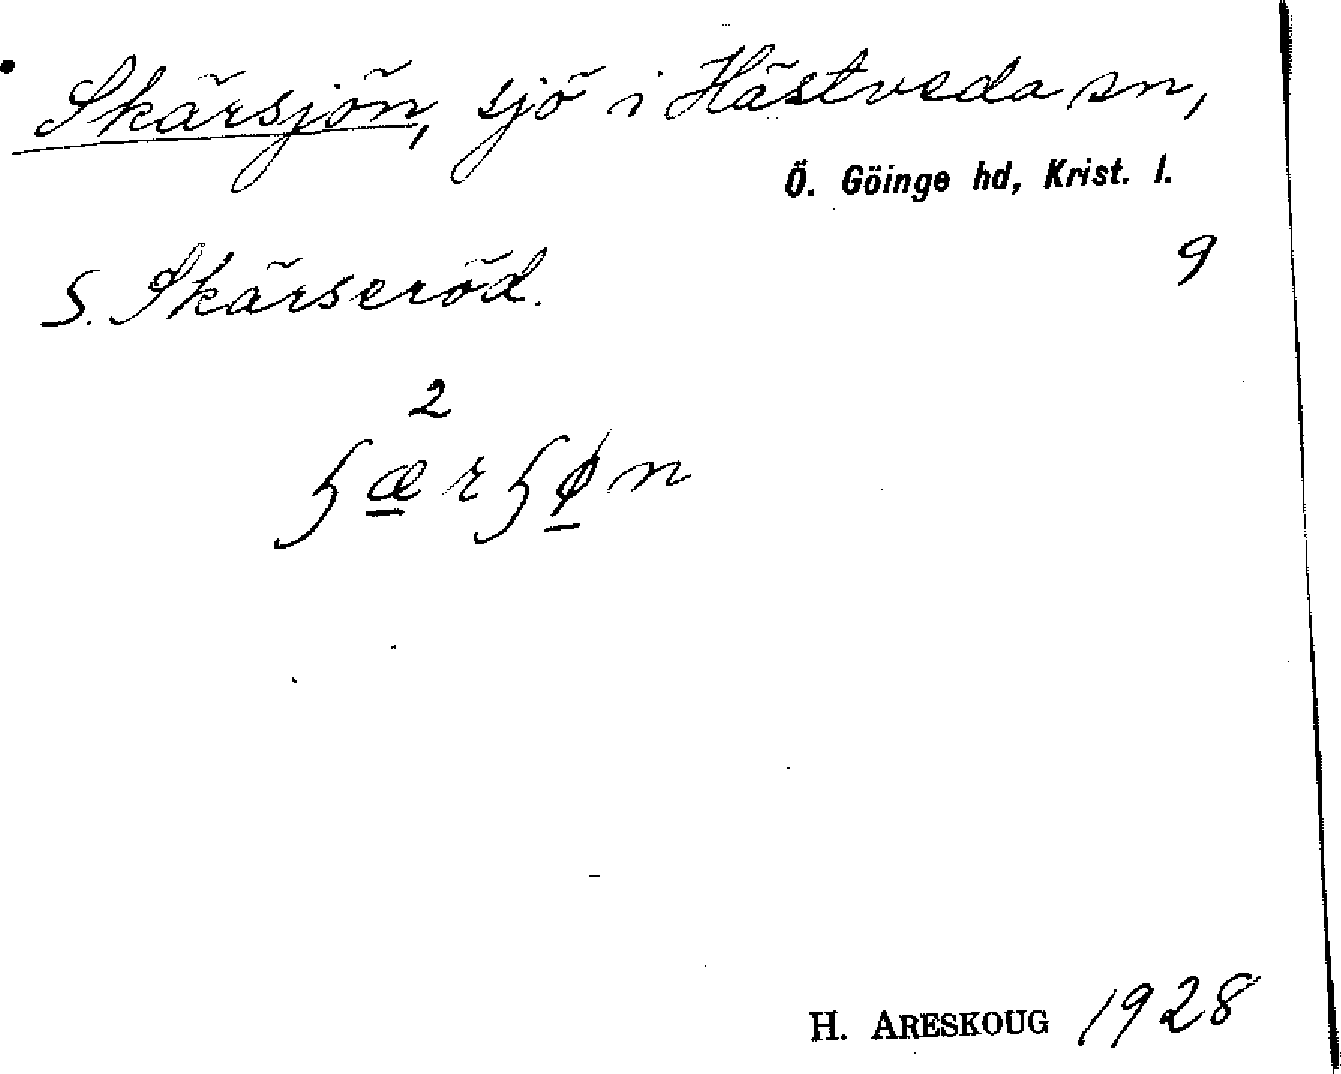 Skärsjön, sjö i Hästveda sn,
Ö. Göinge hd, Krist. l.
9
S. Skärseröd.
2
ɧærɧøn
H. ARESKOUG 1928